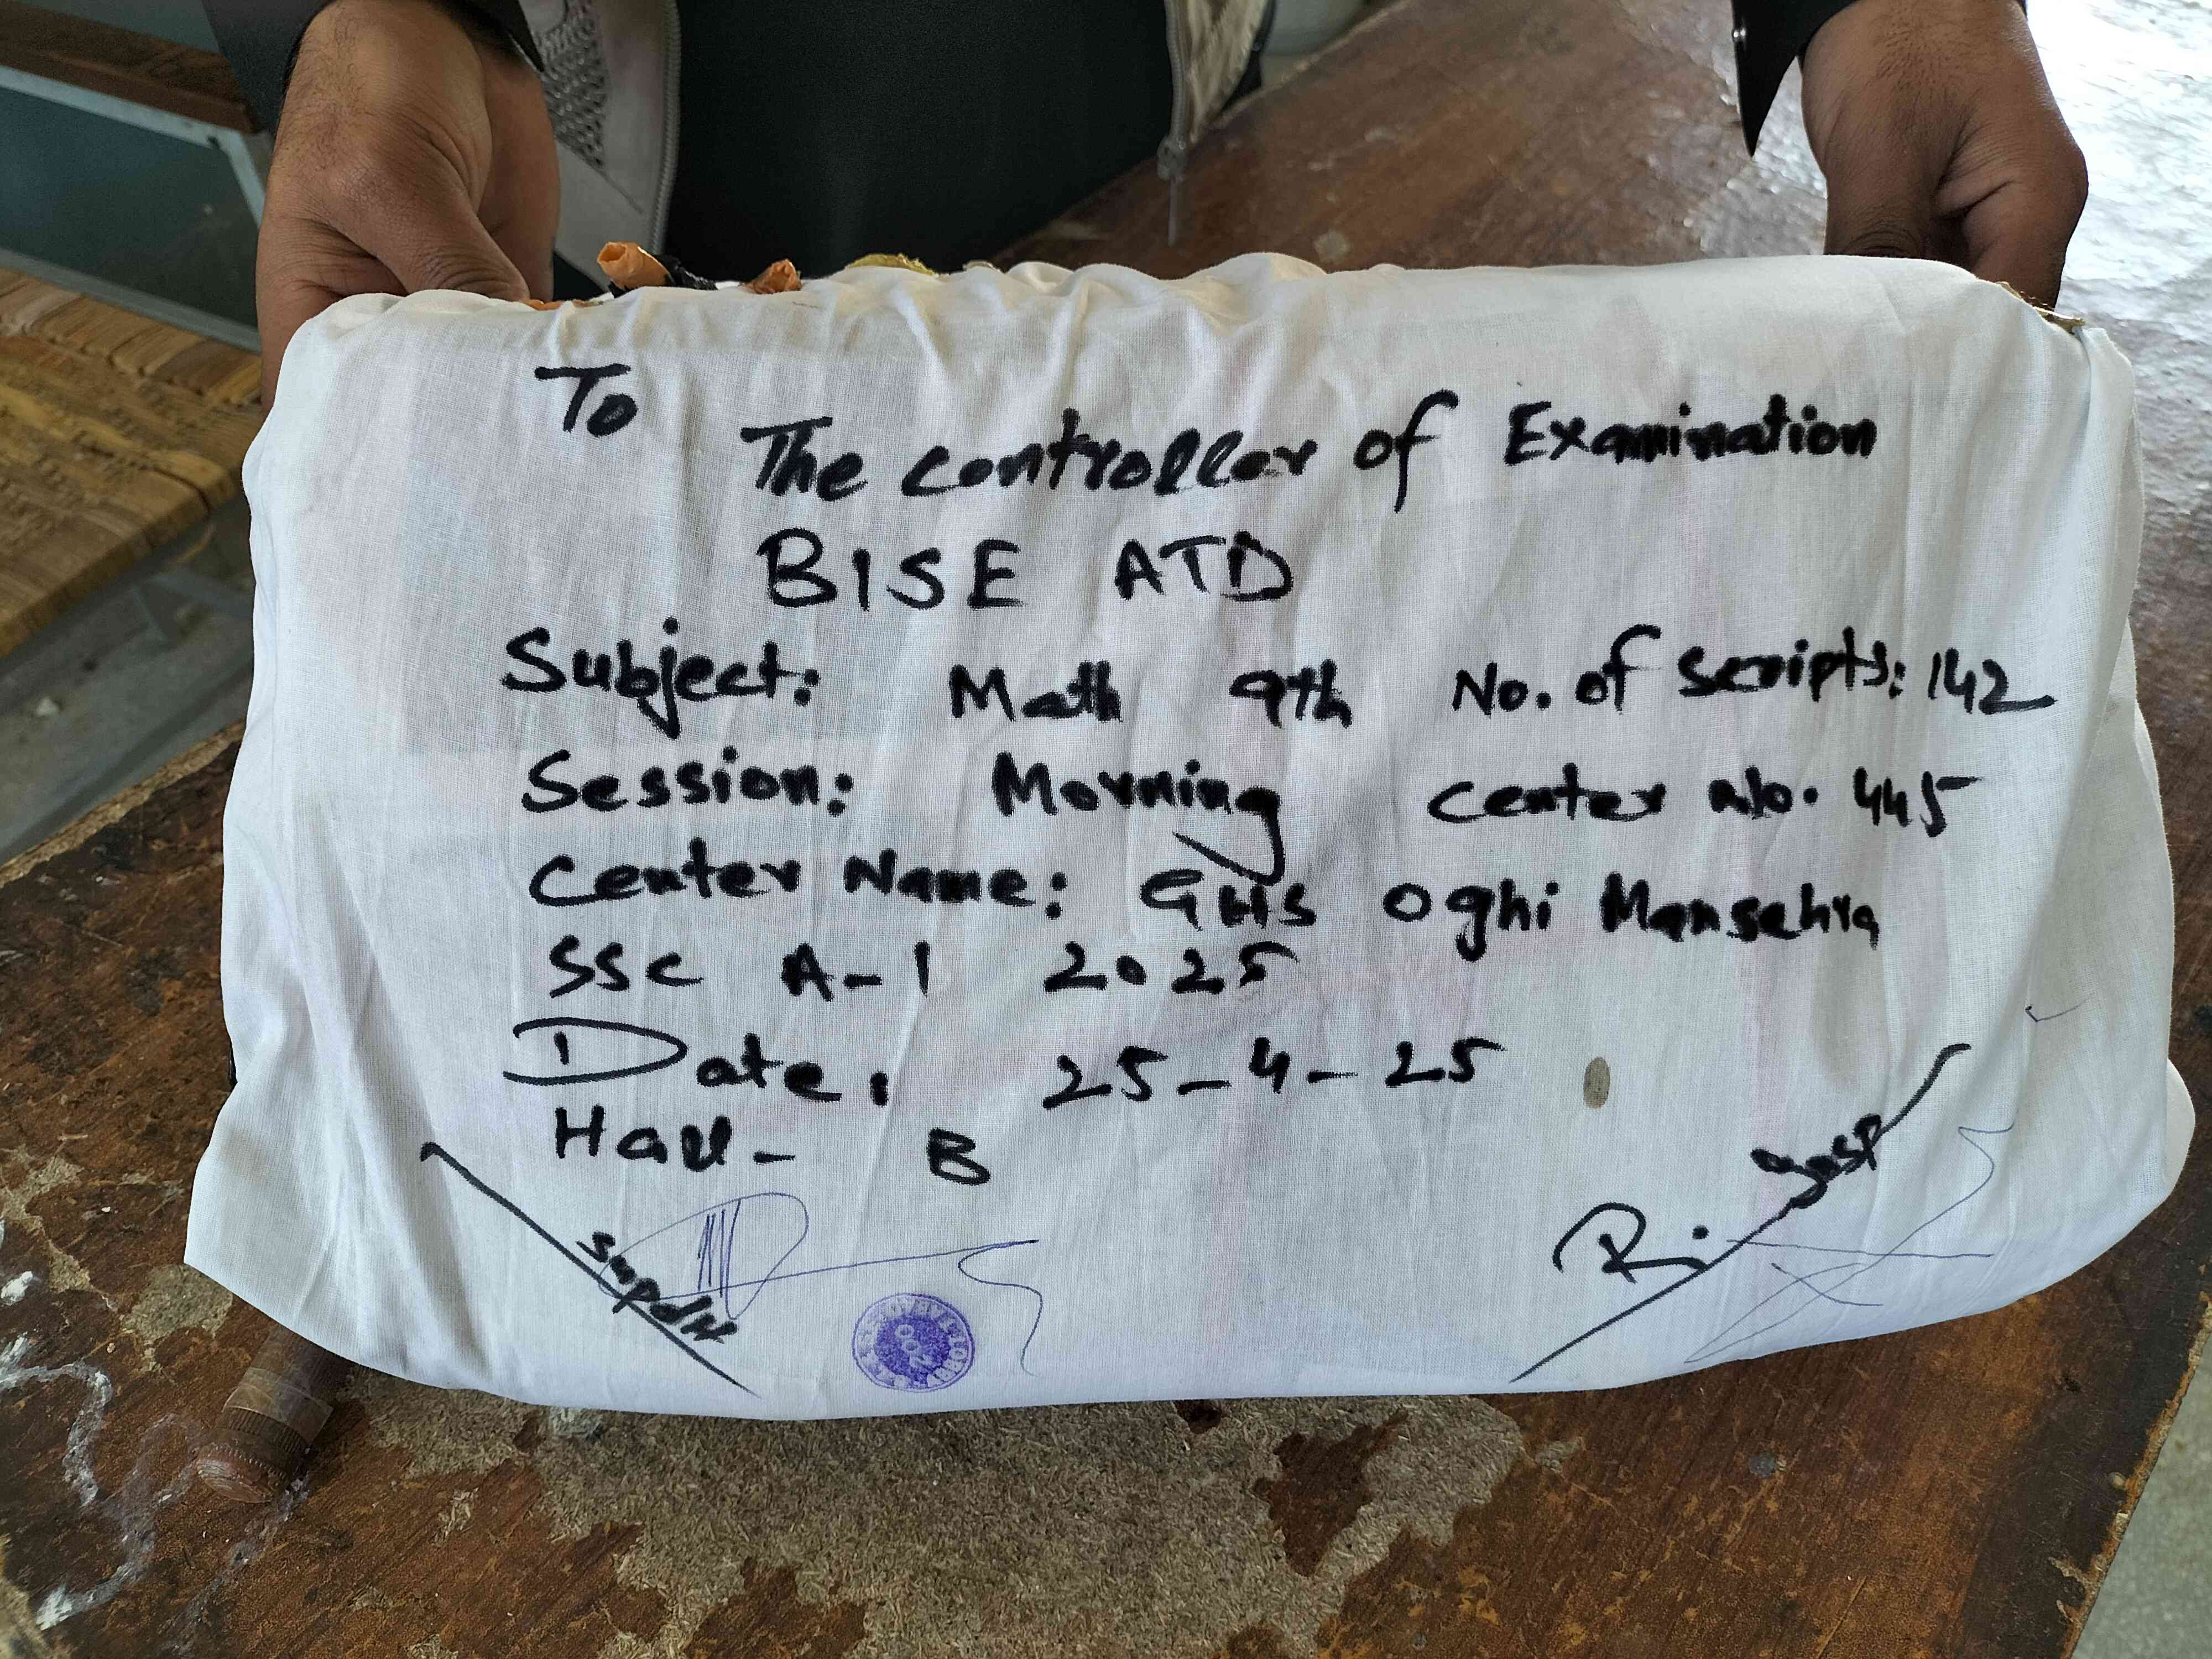 To
The controller of Examination
BISE ATD
Subject: Math 9th No. of scripts: 142
Session: Morning Center No. 445
Center Name: GHS Oghi Mansehra
SSC A-1 2025
Date: 25-4-25
Hall- B
Supdtt